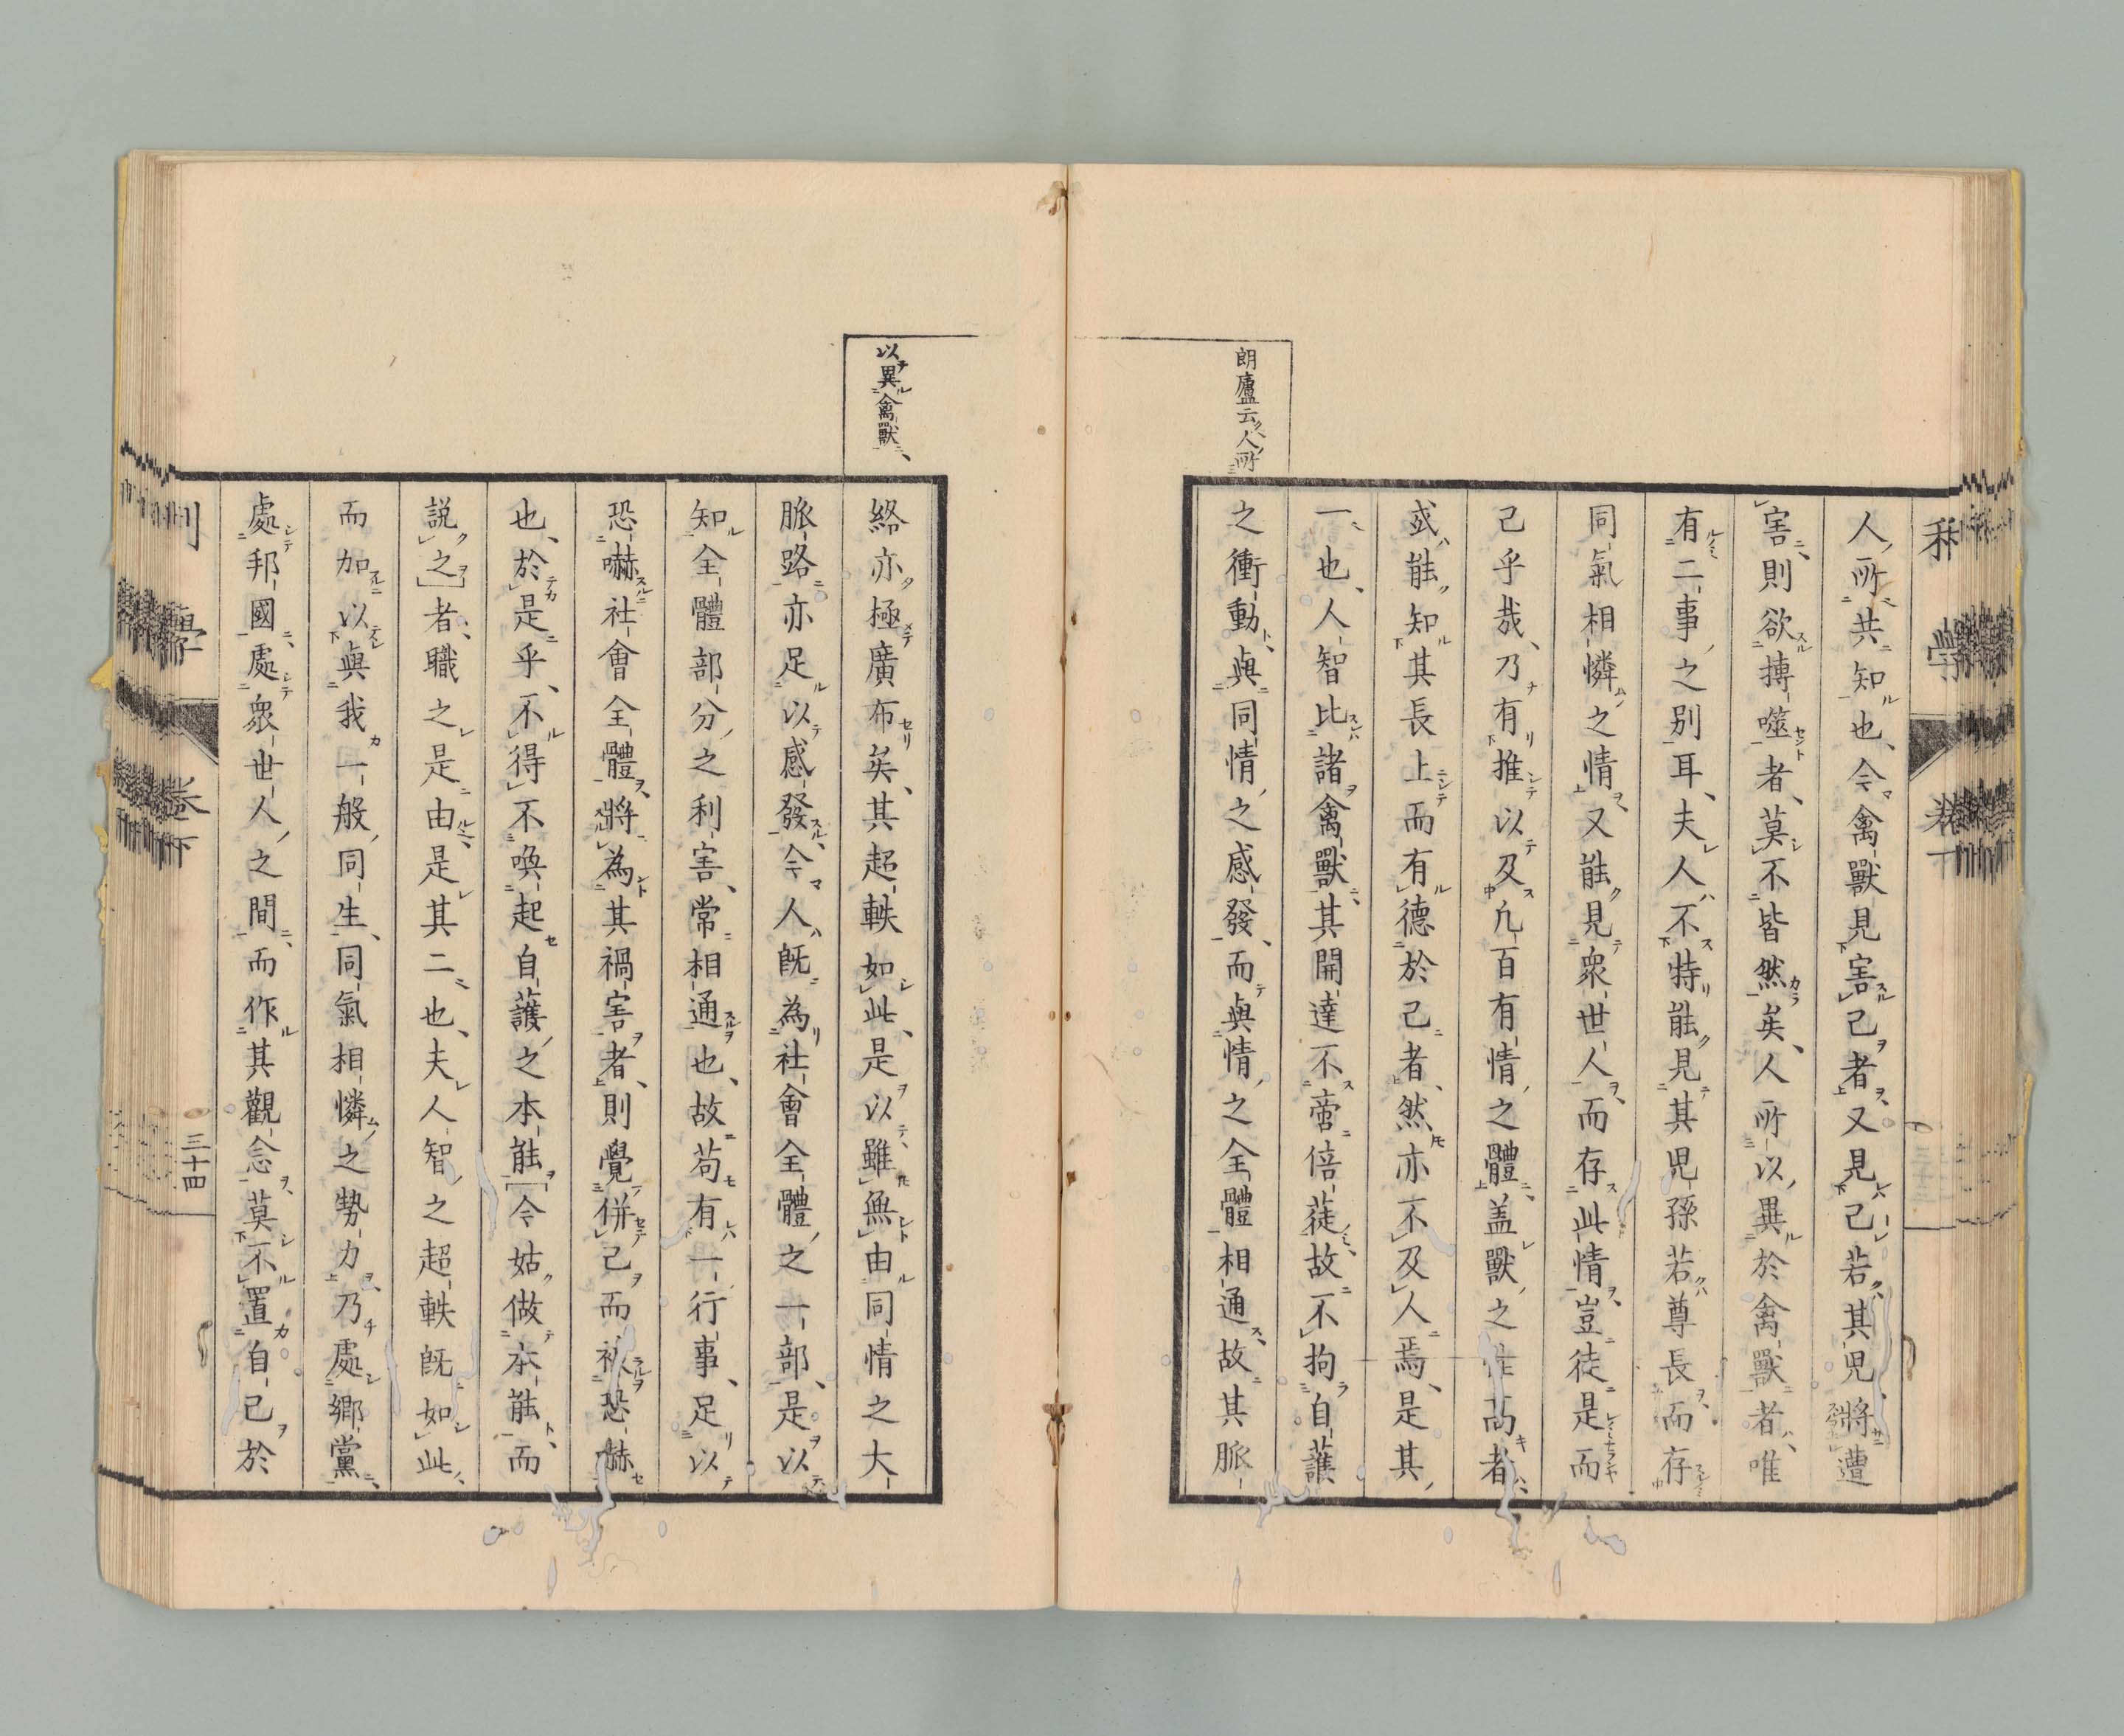 朗廬云人所
人所共知也、今禽獸見害己者又見己若其児、將遭
害、則欲搏噬者、莫不皆然矣、人所以異於禽獸者、唯
有二事之別耳、夫人不特能見其児孫若尊長、而存
同氣相憐之情又能見衆世人、而存此情、豈徒是而
己乎哉、乃有推以及凢百有情之體、盖獸之性高者、
或能知其長上而有德於己者、然亦不及人焉、是其
一也、人智比諸禽獸、其開達不啻倍蓰、故不拘自護
之衝動、與同情之感發、而與情之全體相通、故其脈
以異禽獸、
絡亦極廣布矣、其超軼如此、是以雖無由同情之大
脈路亦足以感發、今人既為社會全體之一部、是以
知全體部分之利害、常相通也、故苟有一行事、足以
恐嚇社會全體、將為其禍害者、則覺併己而被恐嚇
也、於是乎、不得不喚起自護之本能[今姑做本能、而
説之]者、職之是由、是其二也、夫人智之超軼既如此、
而加以與我一般同生、同氣相憐之勢力、乃處鄉黨、
處邦國、處衆世人之間、而作其觀念、莫不置自己於
三十四